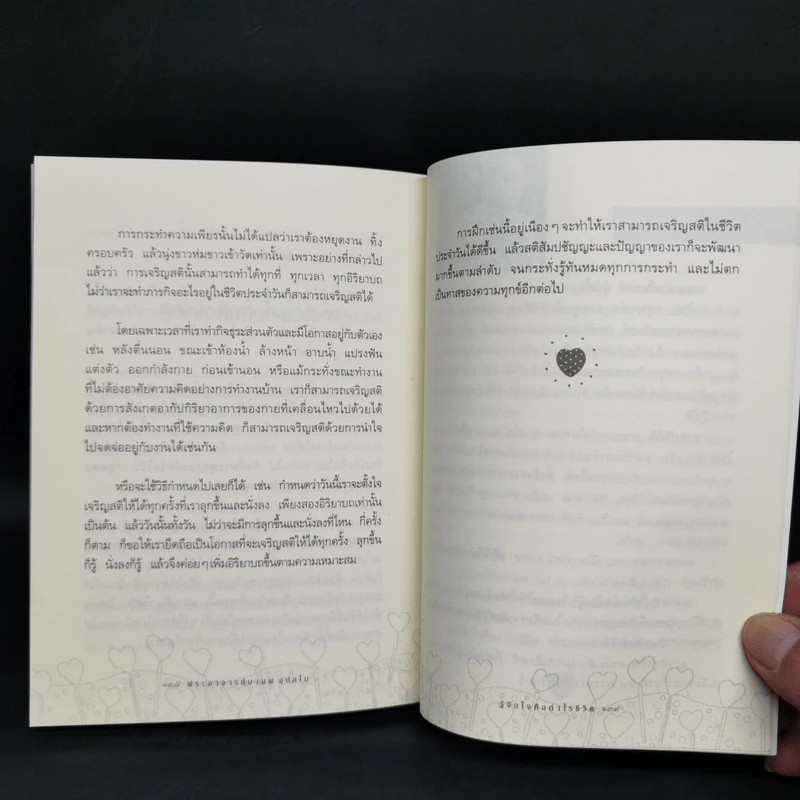 การกระทำความเพียรนั้นไม่ได้แปลว่าเราต้องหยุดงาน ทิ้ง
ครอบครัว แล้วนุ่งขาวห่มขาวเข้าวัดเท่านั้น เพราะอย่างที่กล่าวไป
แล้วว่า การเจริญสตินั้นสามารถทำได้ทุกที่ ทุกเวลา ทุกอิริยาบถ
ไม่ว่าเราจะทำภารกิจอะไรอยู่ในชีวิตประจำวันก็สามารถเจริญสติได้
โดยเฉพาะเวลาที่เราทำกิจธุระส่วนตัวและมีโอกาสอยู่กับตัวเอง
เช่น หลังตื่นนอน ขณะเข้าห้องน้ำ ล้างหน้า อาบน้ำ แปรงฟัน
แต่งตัว ออกกำลังกาย ก่อนเข้านอน หรือแม้กระทั่งขณะทำงาน
ที่ไม่ต้องอาศัยความคิดอย่างการทำงานบ้าน เราก็สามารถเจริญสติ
ด้วยการสังเกตอากัปกิริยาอาการของกายที่เคลื่อนไหวไปด้วยได้
และหากต้องทำงานที่ใช้ความคิด ก็สามารถเจริญสติด้วยการนำใจ
ไปจดจ่ออยู่กับงานได้เช่นกัน
หรือจะใช้วิธีกำหนดไปเลยก็ได้ เช่น กำหนดว่าวันนี้เราจะตั้งใจ
เจริญสติให้ได้ทุกครั้งที่เราลุกขึ้นและนั่งลง เพียงสองอิริยาบถเท่านั้น
เป็นต้น แล้ววันนั้นทั้งวัน ไม่ว่าจะมีการลุกขึ้นและนั่งลงที่ไหน กี่ครั้ง
ก็ตาม ก็ขอให้เรายึดถือเป็นโอกาสที่จะเจริญสติให้ได้ทุกครั้ง ลุกขึ้น
ก็รู้ นั่งลงก็รู้ แล้วจึงค่อยๆเพิ่มอิริยาบถขึ้นตามความเหมาะสม
๑๓๘ พระอาจารย์มานพ อุปสโม
การฝึกเช่นนี้อยู่เนืองๆจะทำให้เราสามารถเจริญสติในชีวิต
ประจำวันได้ดีขึ้น แล้วสติสัมปชัญญะและปัญญาของเราก็จะพัฒนา
มากขึ้นตามลำดับ จนกระทั่งรู้ทันหมดทุกการกระทำ และไม่ตก
เป็นทาสของความทุกข์อีกต่อไป
รู้จักใจคือกำไรชีวิต ๑๓๙